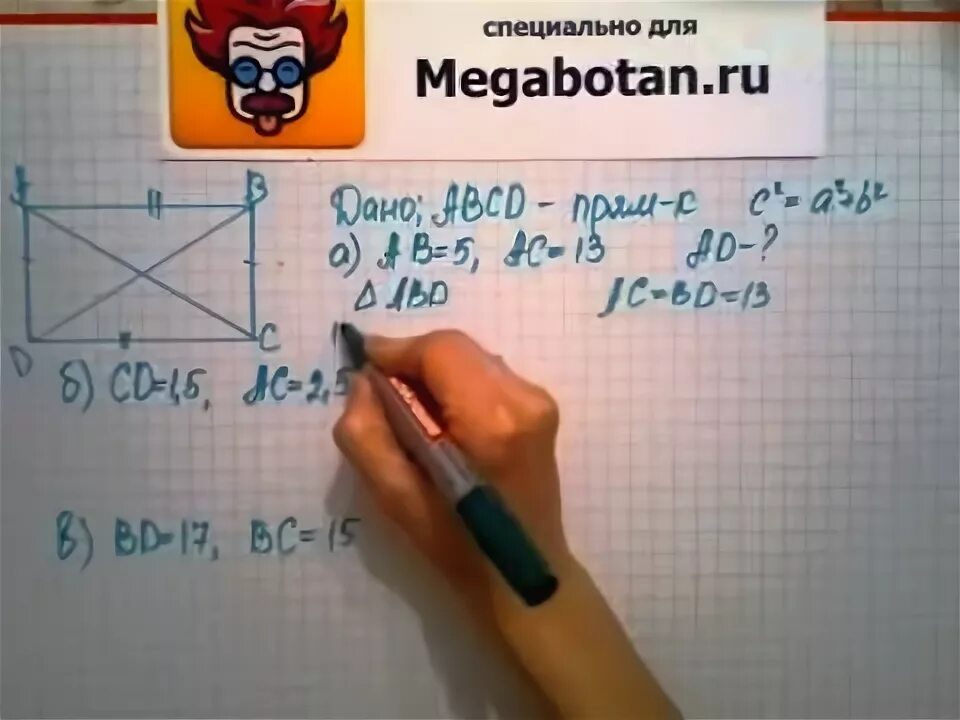 специально для
Megabotan.ru
A B
Дано; ABCD - прям-к c²=a²+b²
а) AB=5, AC=13 AD-?
Δ ABD AC=BD=13
D C
б) CD=1,5, AC=2,5
в) BD=17, BC=15